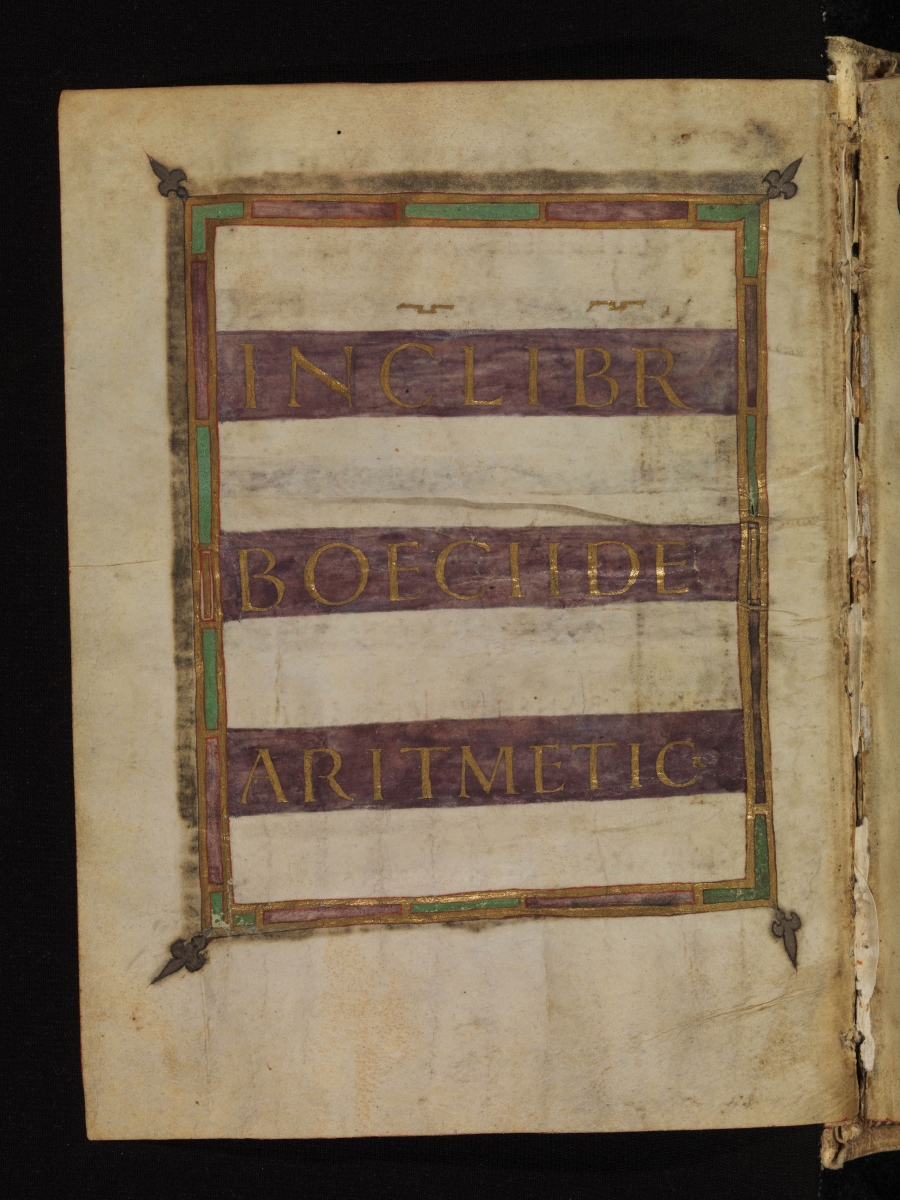 INC LIBR
BOECII DE
ARITMETICĘ